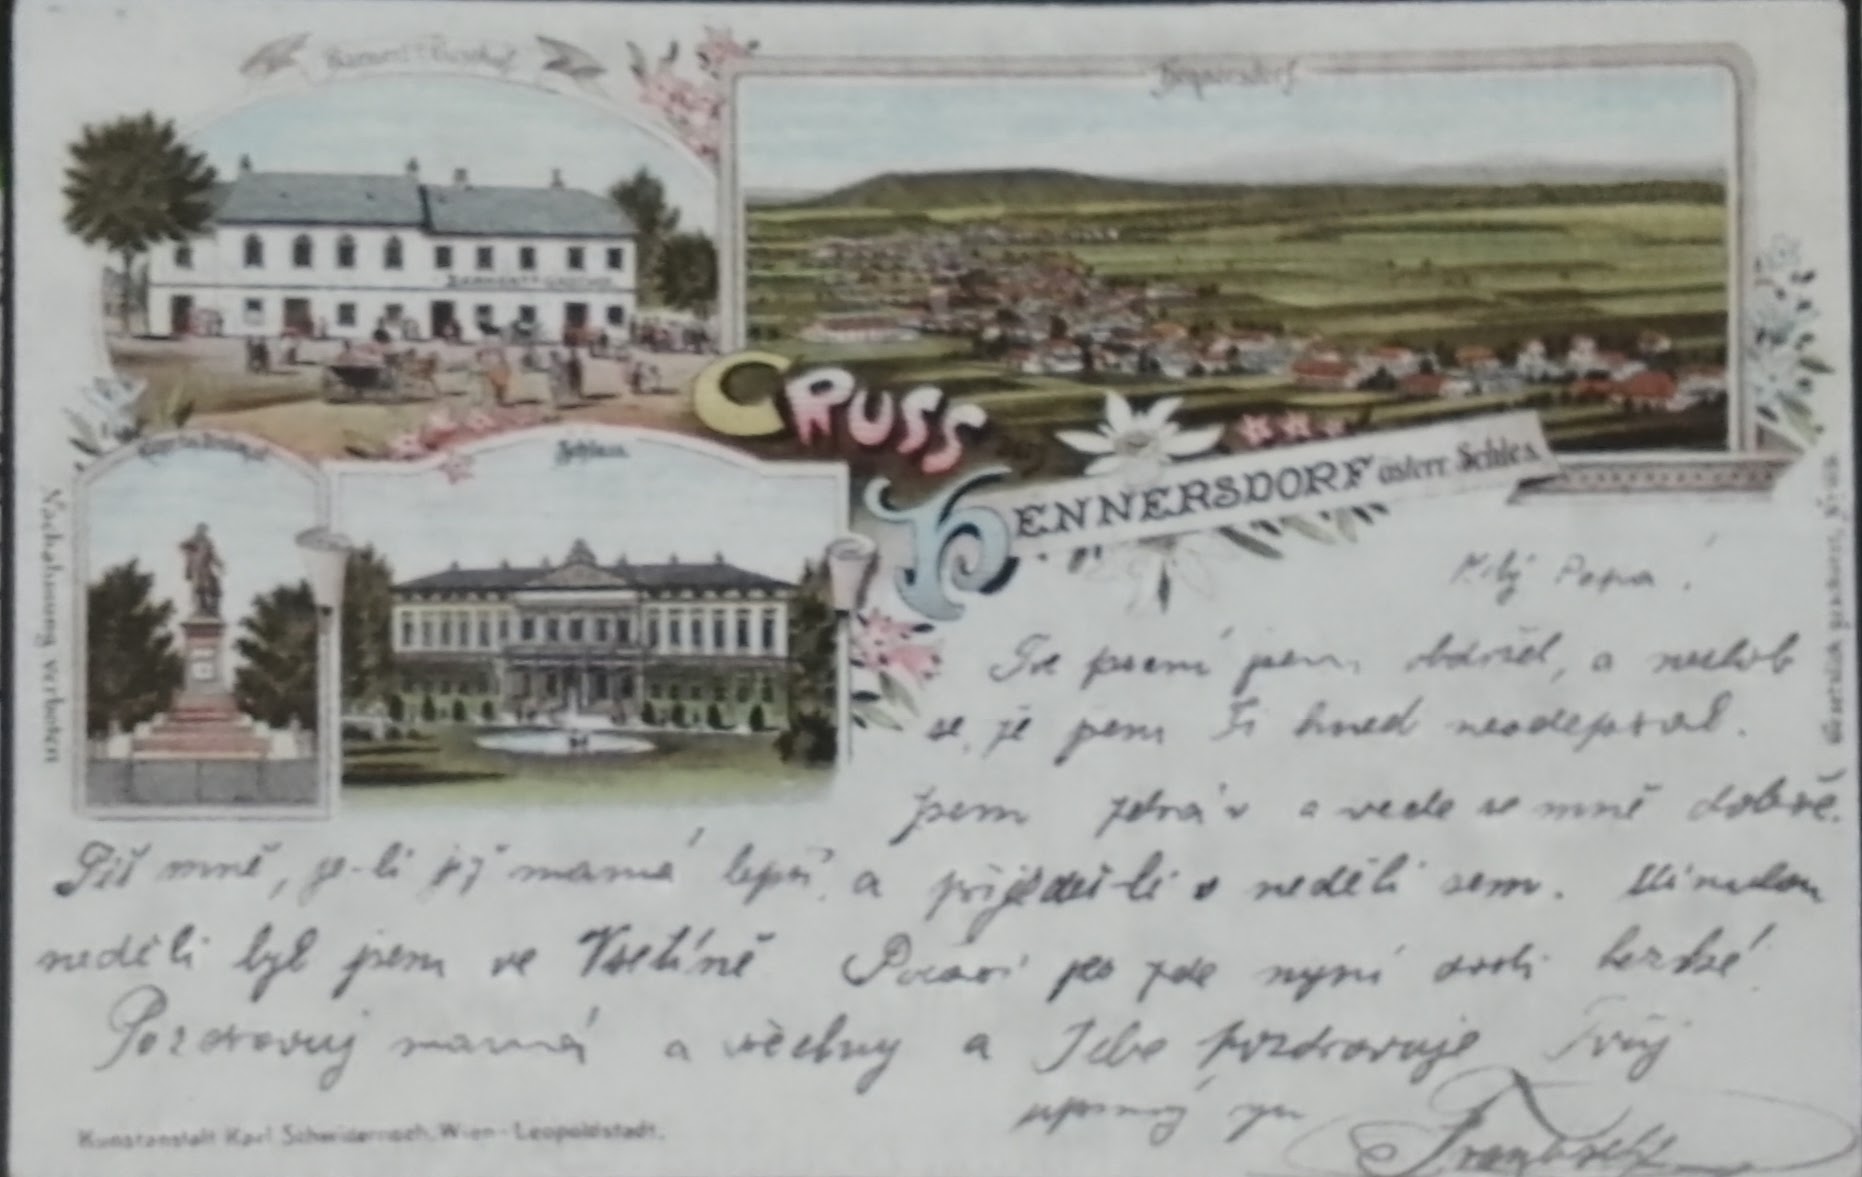 Hennersdorf
Schloss
GRUSS
HENNERSDORF österr. Schles.
Nachahmung verboten
Milý Papa!
Tvé psaní jsem obdržel, a nezlob
se, že jsem Ti hned neodepsal.
Jsem zdráv a vede se mně dobře.
Piš mně, je-li již mamá lepší, a přijedeš-li v neděli sem. Minulou
neděli byl jsem ve Vsetíně Počasí je zde nyní dosti hezké
Pozdravuj mamá a všechny a Tebe pozdravuje Tvůj
upřímný syn
František
Kunstanstalt Karl Schwidernoch, Wien-Leopoldstadt.